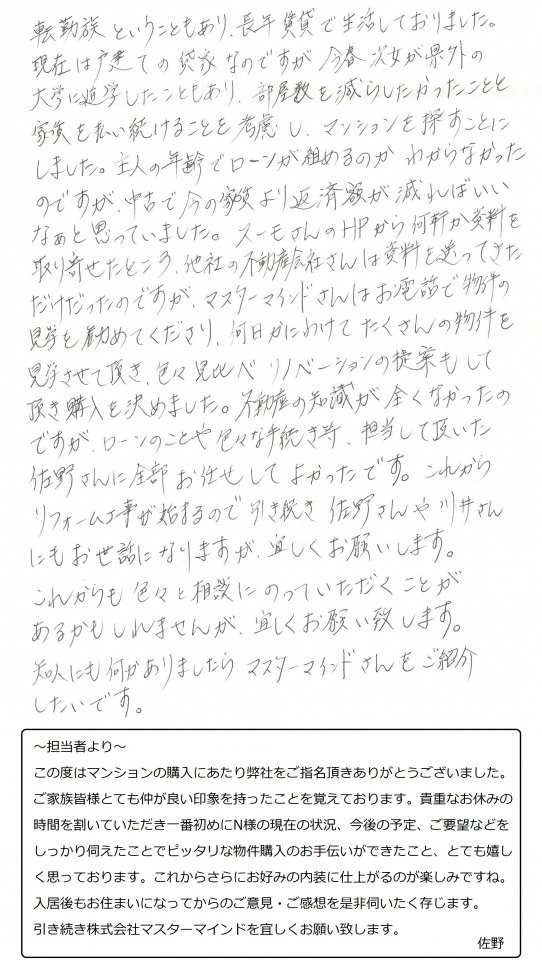 転勤族ということもあり、長年賃貸で生活しておりました。
現在は戸建ての貸家なのですが今春次女が県外の
大学に進学したこともあり、部屋数を減らしたかったことと
家賃を払い続けることを考慮し、マンションを探すことに
しました。主人の年齢でローンが組めるのかわからなかった
のですが、中古で今の家賃より返済額が減ればいい
なぁと思っていました。スーモさんのHPから何軒か資料を
取り寄せたところ、他社の不動産会社さんは資料を送ってきた
だけだったのですが、マスターマインドさんはお電話で物件の
見学を勧めてくださり、何日かにわけてたくさんの物件を
見学させて頂き、色々見比べリノベーションの提案もして
頂き購入を決めました。不動産の知識が全くなかったの
ですが、ローンのことや色々な手続き等、担当して頂いた
佐野さんに全部お任せしてよかったです。これから
リフォーム工事が始まるので引き続き佐野さんや川井さん
にもお世話になりますが、宜しくお願いします。
これからも色々と相談にのっていただくことが
あるかもしれませんが、宜しくお願い致します。
知人にも何かありましたらマスターマインドさんをご紹介
したいです。
～担当者より～
この度はマンションの購入にあたり弊社をご指名頂きありがとうございました。
ご家族皆様とても仲が良い印象を持ったことを覚えております。貴重なお休みの
時間を割いていただき一番初めにN様の現在の状況、今後の予定、ご要望などを
しっかり伺えたことでピッタリな物件購入のお手伝いができたこと、とても嬉し
く思っております。これからさらにお好みの内装に仕上がるのが楽しみですね。
入居後もお住まいになってからのご意見・ご感想を是非伺いたく存じます。
引き続き株式会社マスターマインドを宜しくお願い致します。
佐野